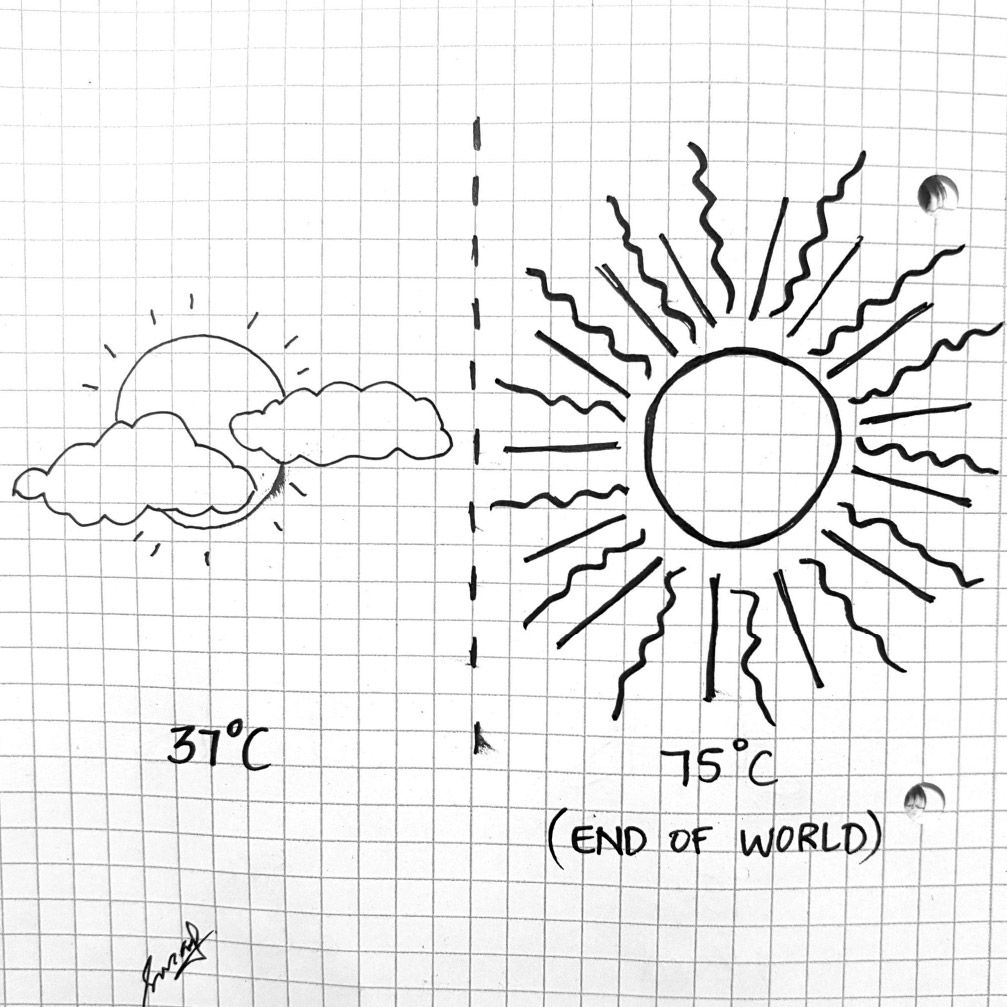 37°C
75°C
(END OF WORLD)